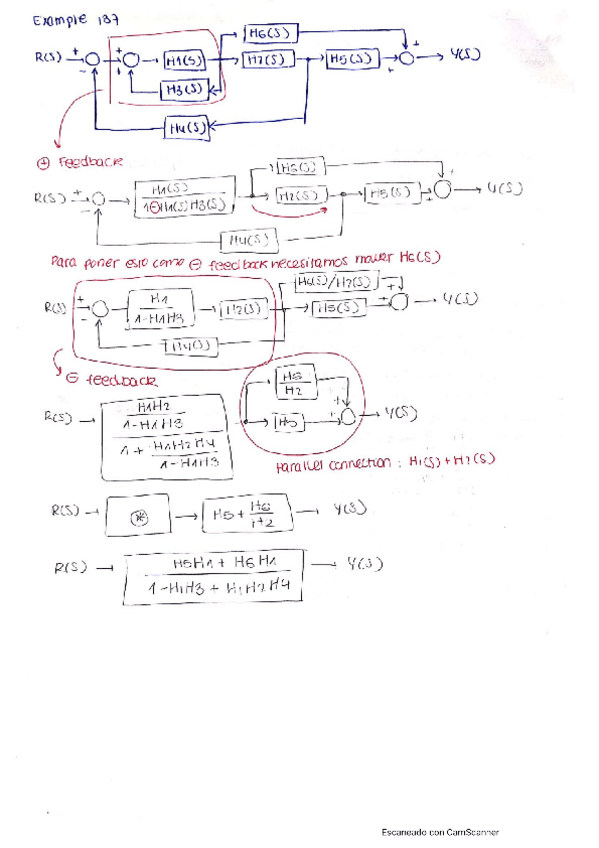 Example 137
H6(S)
R(S) + - + + H1(S) H2(S) H5(S) + + Y(S)
H3(S)
H4(S)
⊕ Feedback
H6(S)
R(S) + - H1(S) H2(S) H5(S) + + Y(S)
1⊖H1(S)H3(S)
H4(S)
Para poner esto como ⊖ feedback necesitamos mover H6(S)
H6(S)/H2(S) +
R(S) + - H1 H2(S) H5(S) + Y(S)
1-H1H3
H4(S)
⊖ feedback
H6
H2
R(S) H1H2 + + Y(S)
1-H1H3 H5
1 + H1H2H4
1-H1H3
Parallel connection : H1(S) + H2(S)
R(S) ⊛ H5 + H6 Y(S)
H2
R(S) H5H1 + H6H1 Y(S)
1-H1H3 + H1H2H4
Escaneado con CamScanner